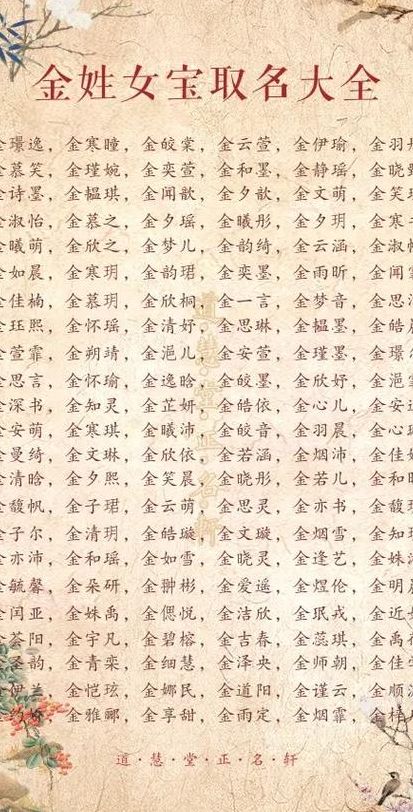 金姓女宝取名大全
金璟逸，金寒瞳，金皎棠，金云萱，金伊瑜，金羽
金慕笑，金瑾婉，金奕萱，金和墨，金静瑶，金晓
金诗墨，金韫琪，金闻歆，金夕歆，金文萌，金笑
金淑怡，金慕之，金夕瑶，金曦彤，金夕玥，金寒
金曦萌，金欣之，金梦儿，金韵绮，金云涵，金淑
金如晨，金寒玥，金韵珺，金奕墨，金雨昕，金闻
金佳楠，金慕玥，金欣桐，金一言，金梦音，金思
金珏熙，金怀瑶，金清妤，金思琳，金韫墨，金皓
金萱霏，金朔靖，金浥儿，金安萱，金瑾墨，金璟
金思言，金怀瑜，金逸晗，金皎墨，金欣妤，金浥
金深书，金知灵，金芷妍，金皓依，金心儿，金安
金安萌，金寒琪，金曦沛，金皎音，金羽晨，金心
金曼绮，金文琳，金欣依，金若涵，金烟沛，金佳
金清晗，金夕熙，金笑晨，金晓彤，金若儿，金和
金馥帆，金子珺，金云萌，金思灵，金亦书，金馥
金子尔，金清玥，金皓璇，金文璇，金烟雪，金知
金亦沛，金和瑶，金如雪，金晓灵，金逢艺，金姝
金毓馨，金朵研，金翀彬，金爱遥，金煜伦，金明
金闰亚，金姝禹，金偲悦，金洁欣，金珉戎，金近
金荟阳，金宇凡，金碧榕，金吉春，金蕊琪，金禹
金圣韵，金青栾，金细慧，金泽央，金师朝，金佳
金伊兰，金恺玹，金娜民，金道阳，金谨云，金顺
金雅郦，金享甜，金雨定，金烟霏，金
道·慧·堂·正·名·轩
道慧堂正名轩